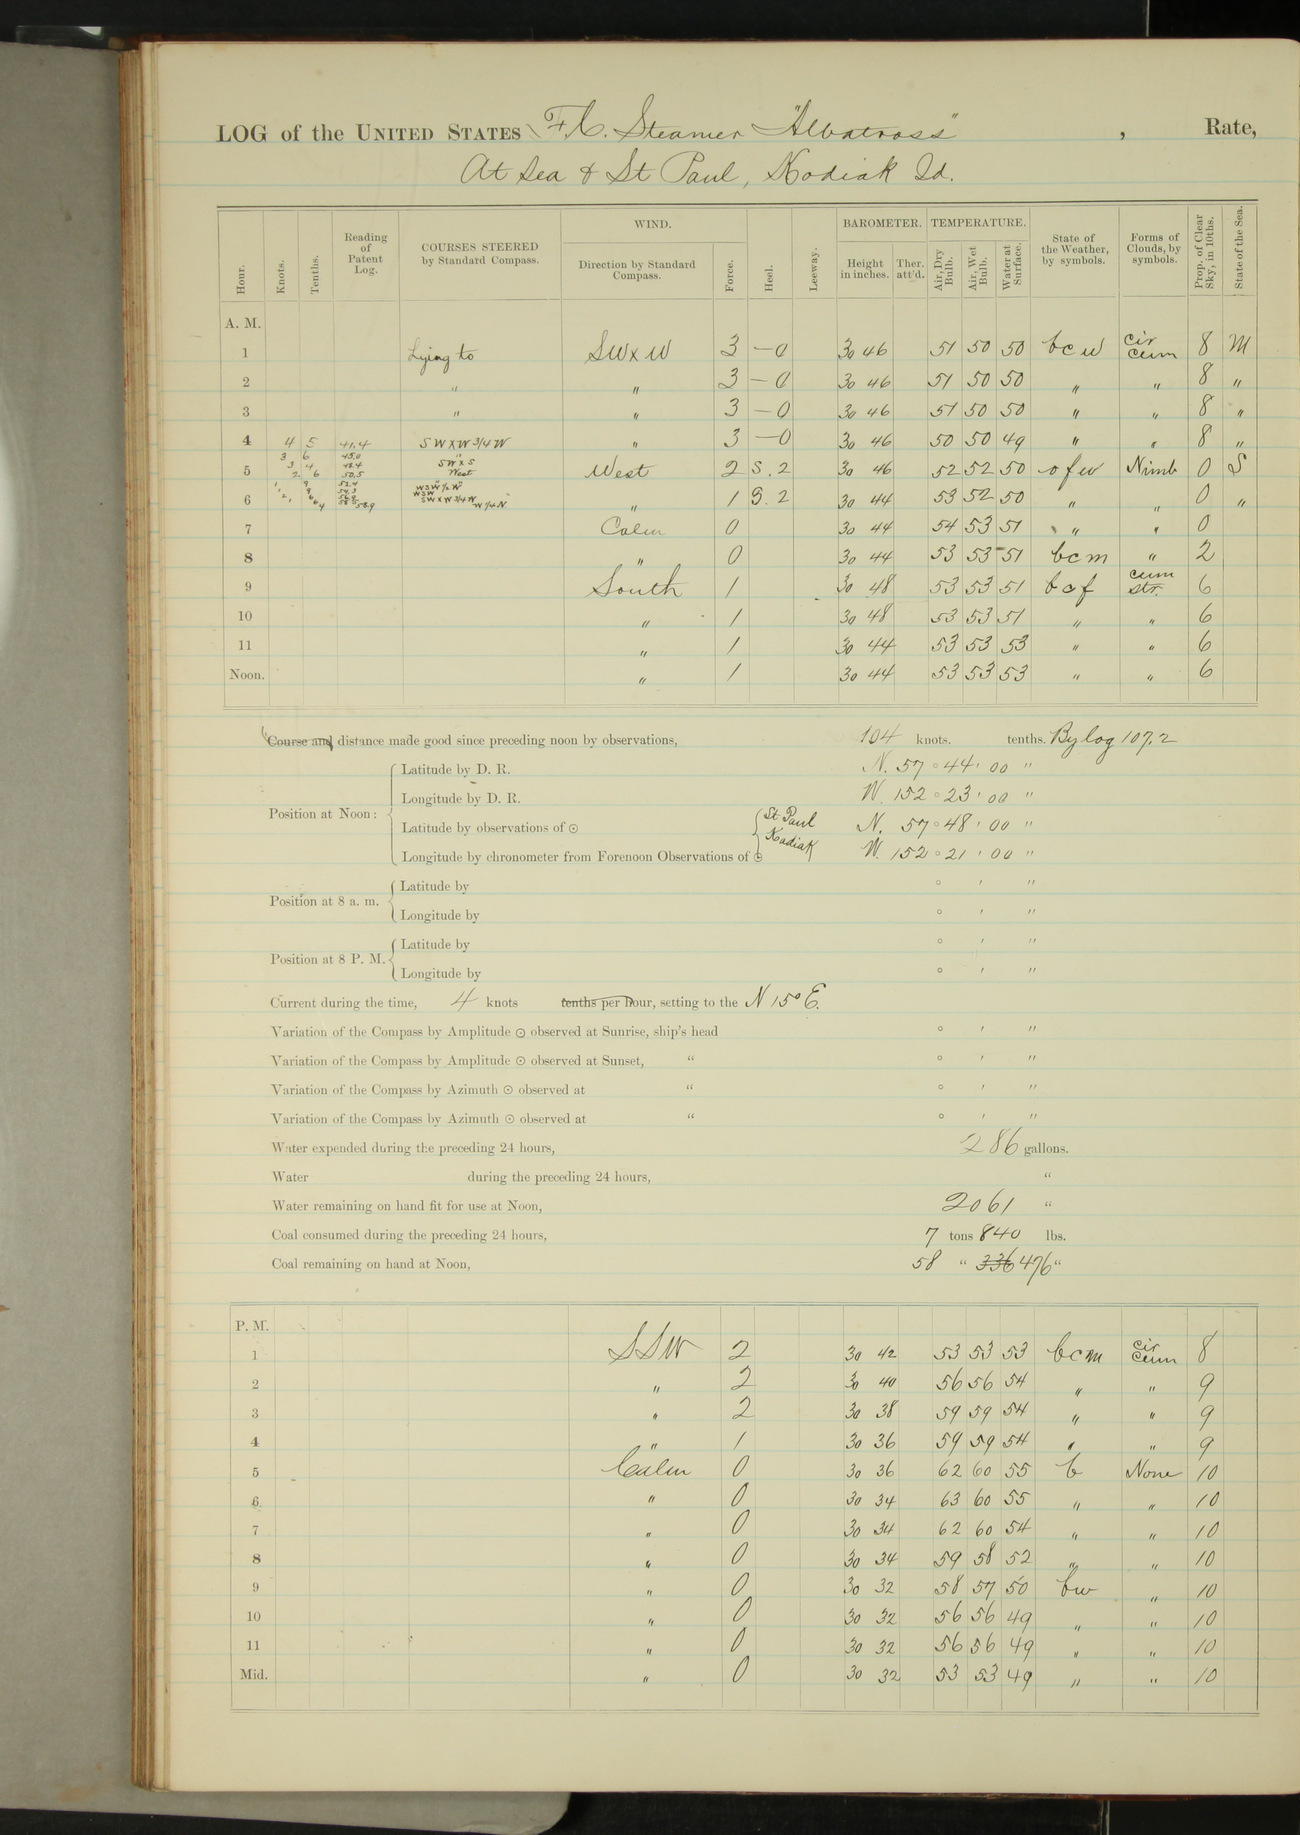 LOG of the UNITED STATES F.C. Steamer "Albatross", Rate,
At Sea & St Paul, Kodiak Id.
Hour. Knots. Tenths. Reading of Patent Log. COURSES STEERED by Standard Compass. WIND. Direction by Standard Compass. Force. Heel. Leeway. BAROMETER. Height in inches. Ther. att'd. TEMPERATURE. Air, Dry Bulb. Air, Wet Bulb. Water at Surface. State of the Weather, by symbols. Forms of Clouds, by symbols. Prop. of Clear Sky, in 10ths. State of the Sea.
A. M.
1 Lying to SWxW 3 —0 30 46 51 50 50 bcw cir cum 8 M
2 " " 3 —0 30 46 51 50 50 " " 8 "
3 " " 3 —0 30 46 51 50 50 " " 8 "
4 4 5 41.4 SWxW 3/4 W " 3 —0 30 46 50 50 49 " " 8 "
3 6 45.0 "
5 3 4 48.4 SWxS West 2 S. 2 30 46 52 52 50 ofw Nimb 0 S
2 6 50.5 West
WSW 1/2 W
WSW
6 SWxW 3/4 W " 1 S. 2 30 44 53 52 50 " " 0 "
4 58.9 W 1/4 N
7 Calm 0 30 44 54 53 51 " " 0
8 " 0 30 44 53 53 51 bcm " 2
9 South 1 30 48 53 53 51 bcf cum str. 6
10 " 1 30 48 53 53 51 " " 6
11 " 1 30 44 53 53 53 " " 6
Noon. " 1 30 44 53 53 53 " " 6
Course and distance made good since preceding noon by observations, 104 knots. tenths. By log 107.2
Position at Noon:
Latitude by D. R. N. 57 ° 44 ' 00 "
Longitude by D. R. W. 152 ° 23 ' 00 "
Latitude by observations of ☉ St Paul N. 57 ° 48 ' 00 "
Longitude by chronometer from Forenoon Observations of ☉ Kodiak W. 152 ° 21 ' 00 "
Position at 8 a. m.
Latitude by ° ' "
Longitude by ° ' "
Position at 8 P. M.
Latitude by ° ' "
Longitude by ° ' "
Current during the time, 4 knots tenths per hour, setting to the N 15° E.
Variation of the Compass by Amplitude ☉ observed at Sunrise, ship's head ° ' "
Variation of the Compass by Amplitude ☉ observed at Sunset, " ° ' "
Variation of the Compass by Azimuth ☉ observed at " ° ' "
Variation of the Compass by Azimuth ☉ observed at " ° ' "
Water expended during the preceding 24 hours, 286 gallons.
Water during the preceding 24 hours, "
Water remaining on hand fit for use at Noon, 2061 "
Coal consumed during the preceding 24 hours, 7 tons 840 lbs.
Coal remaining on hand at Noon, 58 " 336 476 "
P. M.
1 SSW 2 30 42 53 53 53 bcm cir cum 8
2 " 2 30 40 56 56 54 " " 9
3 " 2 30 38 59 59 54 " " 9
4 " 1 30 36 59 59 54 " " 9
5 Calm 0 30 36 62 60 55 b None 10
6 " 0 30 34 63 60 55 " " 10
7 " 0 30 34 62 60 54 " " 10
8 " 0 30 34 59 58 52 " " 10
9 " 0 30 32 58 57 50 bw " 10
10 " 0 30 32 56 56 49 " " 10
11 " 0 30 32 56 56 49 " " 10
Mid. " 0 30 32 53 53 49 " " 10